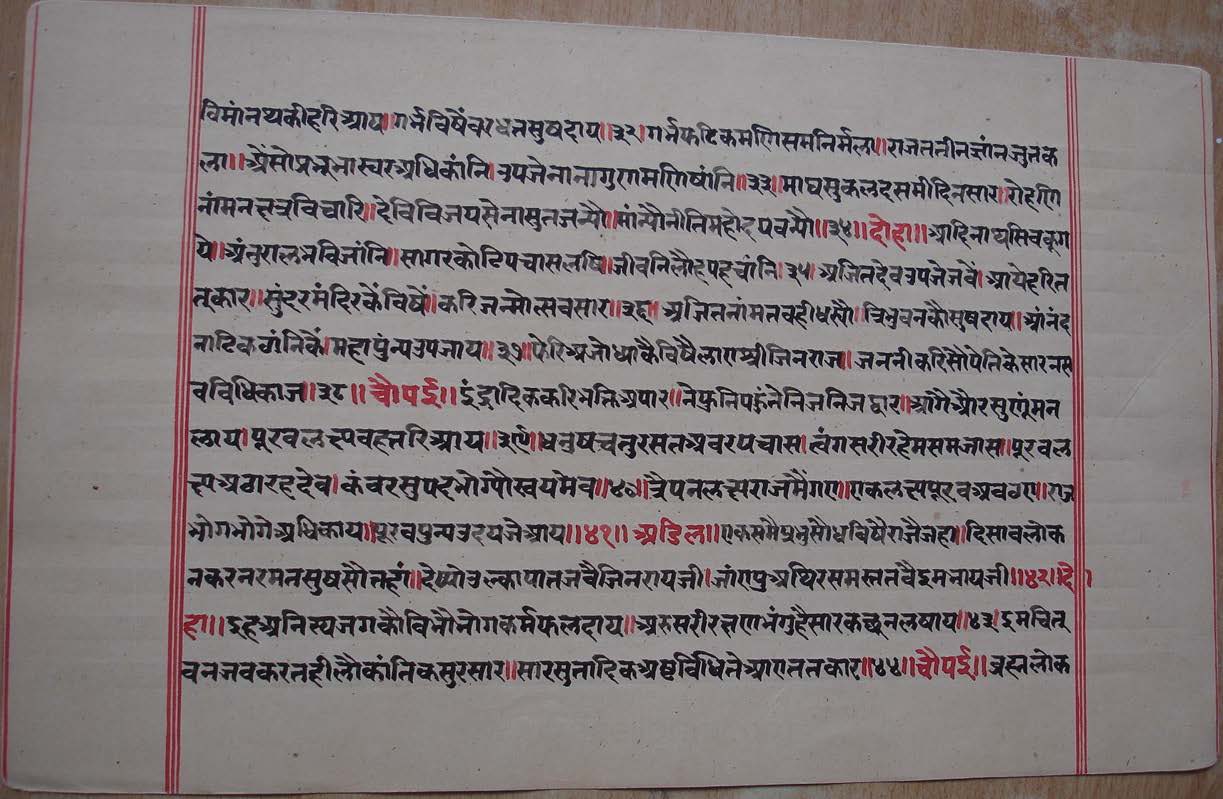 विमांनथकीहरिआय॥गर्भविषैंवरधतसुषदाय॥३२॥गर्भफटिकमणिसमनिर्मला॥राजततीनज्ञांनजुतक
ला॥अैसोप्रभूभास्वरअधिकांनि॥उपजेनानागुणमणिषांनि॥३३॥माघसुकलदसमीदिनसार॥रोहणि
नांमनक्षत्रविचारि॥देविविजयसेनासुतजन्यौ॥मांन्यौनीतिमहोदयवन्यौ॥३४॥दोहा॥आदिनाथसिवकूंग
ये॥अंतुरालभविजांनि॥सागरकोटिपचासलषि॥जीवनिलौहपहचांनि॥३५॥अजितदेवउपजेजवैं॥आयेहरित
तकार॥सुंदरमंदिरकेंविषैं॥करिजन्मोत्सवसार॥३६॥अजितनांमतवहीधस्यौ॥त्रिभुवनकौसुषदाय॥आंनंद
नाटिकठांनिकैं॥महापुंन्यउपजाय॥३७॥फेरिअजोध्याकैविषैलाएश्रीजिनराज॥जननीकरिसौपेतिकेसारनस
वविधिकाज॥३८॥चौपई॥इंद्रादिककरिभक्तिअपार॥नेफुनिपहुंनेनिजनिजद्वार॥आगैऔरसुणूंमन
लाय॥पूरवलक्षवहत्तरिआय॥३९॥धनुषचतुरसतअवरपचास॥त्वंगसरीरहेमसमजास॥पूरवल
क्षअठारहदेव॥कंवरसुपदभोग्यौस्वयमेव॥४०॥त्रैपनलक्षराजमैंगए॥एकलक्षपूरवअवठए॥राज
भोगभोगेअधिकाय॥पूरवपुन्यउदयजेआय॥४१॥अडिल॥एकसमैप्रभुसौधविषैराजैजहा॥दिसावलोक
नकरनरमनसुषसौतहां॥देष्योउल्कापातजवैजिनरायजी॥जांणप्रुअथिरसमस्ततवैइमनायजी॥४२॥दो
हा॥इहअनित्यजगकौविभौभोगकर्मफलदाय॥अरुसरीरक्षणभंगुहैसारकच्छुनलषाय॥४३॥इमचित्
वनजवकरतहीलौकांतिकसुरसार॥सारसुतादिकअष्टविधितेआएततकार॥४४॥चौपई॥व्रह्मलोक